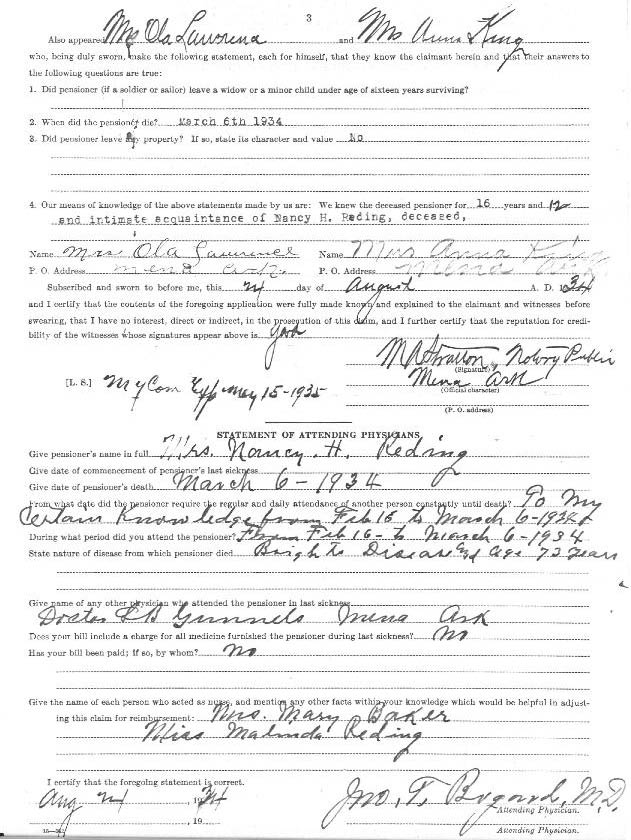 3
Also appeared Mrs Ola Lawrence and Mrs Anna King
who, being duly sworn, make the following statement, each for himself, that they know the claimant herein and that their answers to
the following questions are true:
1. Did pensioner (if a soldier or sailor) leave a widow or a minor child under age of sixteen years surviving?
2. When did the pensioner die? March 6th 1934
3. Did pensioner leave any property? If so, state its character and value No
4. Our means of knowledge of the above statements made by us are: We knew the deceased pensioner for 16 years and 12
and intimate acquaintance of Nancy H. Reding, deceased,
Name Mrs Ola Lawrence Name Mrs Anna King
P. O. Address mena ark. P. O. Address Mena Ark
Subscribed and sworn to before me, this day of August A. D. 1934
and I certify that the contents of the foregoing application were fully made known and explained to the claimant and witnesses before
swearing, that I have no interest, direct or indirect, in the prosecution of this claim, and I further certify that the reputation for credi-
bility of the witnesses whose signatures appear above is good
M R Stratton, Notary Public
(Signature)
[L. S.] My Com Exp May 15-1935 Mena Ark
(Official character)
(P. O. address)
STATEMENT OF ATTENDING PHYSICIANS
Give pensioner's name in full Mrs. Nancy. H. Reding
Give date of commencement of pensioner's last sickness
Give date of pensioner's death March 6-1934
From what date did the pensioner require the regular and daily attendance of another person constantly until death? To My
Certain Knowledge from Feb 16 to March 6-1934
During what period did you attend the pensioner? From Feb 16- to March 6-1934
State nature of disease from which pensioner died Brights Disease and Age 73 years
Give name of any other physician who attended the pensioner in last sickness
Doctor Gunnels Mena Ark
Does your bill include a charge for all medicine furnished the pensioner during last sickness? No
Has your bill been paid; if so, by whom? No
Give the name of each person who acted as nurse, and mention any other facts within your knowledge which would be helpful in adjust-
ing this claim for reimbursement: Mrs. Mary Baker
Miss Malinda Reding
I certify that the foregoing statement is correct.
Aug , 1934 Jno. T. Bogard, M.D.
Attending Physician.
, 19
Attending Physician.